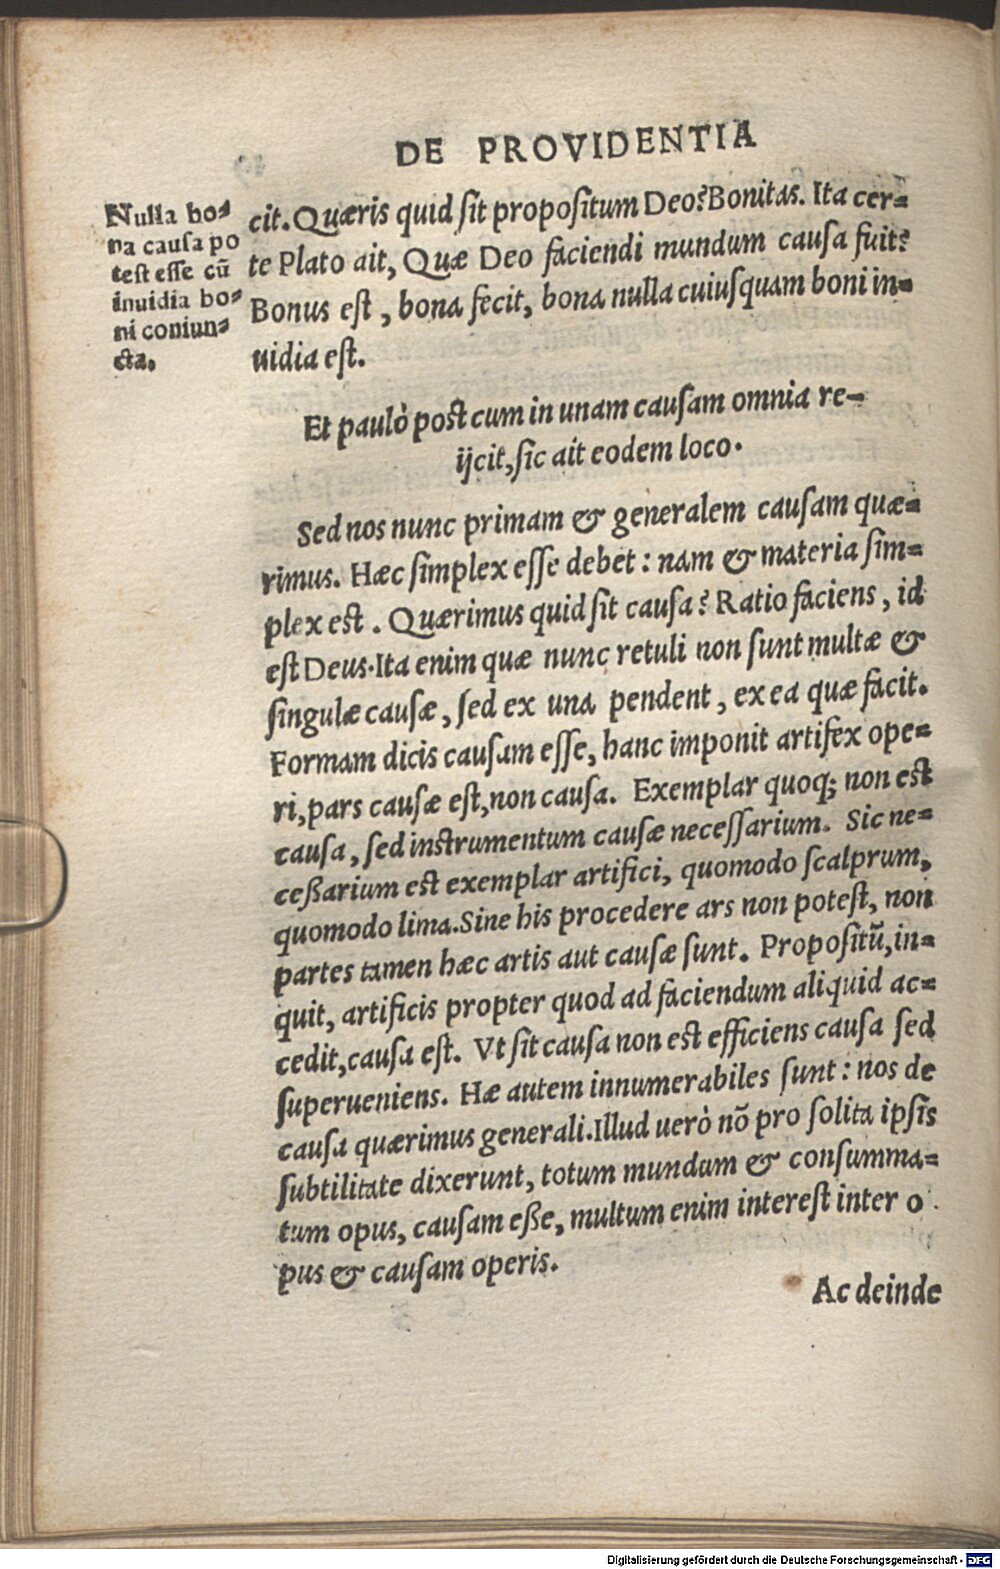 DE PROVIDENTIA
Nulla bo-
na causa po
test esse cū
inuidia bo-
ni coniun-
cta.
cit. Quæris quid sit propositum Deo? Bonitas. Ita cer-
te Plato ait, Quæ Deo faciendi mundum causa fuit?
Bonus est, bona fecit, bona nulla cuiusquam boni in-
uidia est.
Et paulò post cum in unam causam omnia re-
ijcit, sic ait eodem loco.
Sed nos nunc primam & generalem causam quæ-
rimus. Hæc simplex esse debet: nam & materia sim-
plex est. Quærimus quid sit causa? Ratio faciens, id
est Deus. Ita enim quæ nunc retuli non sunt multæ &
singulæ causæ, sed ex una pendent, ex ea quæ facit.
Formam dicis causam esse, hanc imponit artifex ope-
ri, pars causæ est, non causa. Exemplar quoq; non est
causa, sed instrumentum causæ necessarium. Sic ne-
ceßarium est exemplar artifici, quomodo scalprum,
quomodo lima. Sine his procedere ars non potest, non
partes tamen hæc artis aut causæ sunt. Propositū, in-
quit, artificis propter quod ad faciendum aliquid ac-
cedit, causa est. Vt sit causa non est efficiens causa sed
superueniens. Hæ autem innumerabiles sunt: nos de
causa quærimus generali. Illud uerò nō pro solita ipsis
subtilitate dixerunt, totum mundum & consumma-
tum opus, causam eße, multum enim interest inter o
pus & causam operis.
Ac deinde
Digitalisierung gefördert durch die Deutsche Forschungsgemeinschaft - DFG